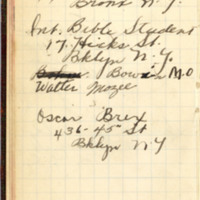 Bronx N.Y.
Int. Bible Student
17 Hicks St.
Bklyn N.Y.
Bowen M.O
Walter Mozee
Oscar Brex
436-45 St
Bklyn N.Y